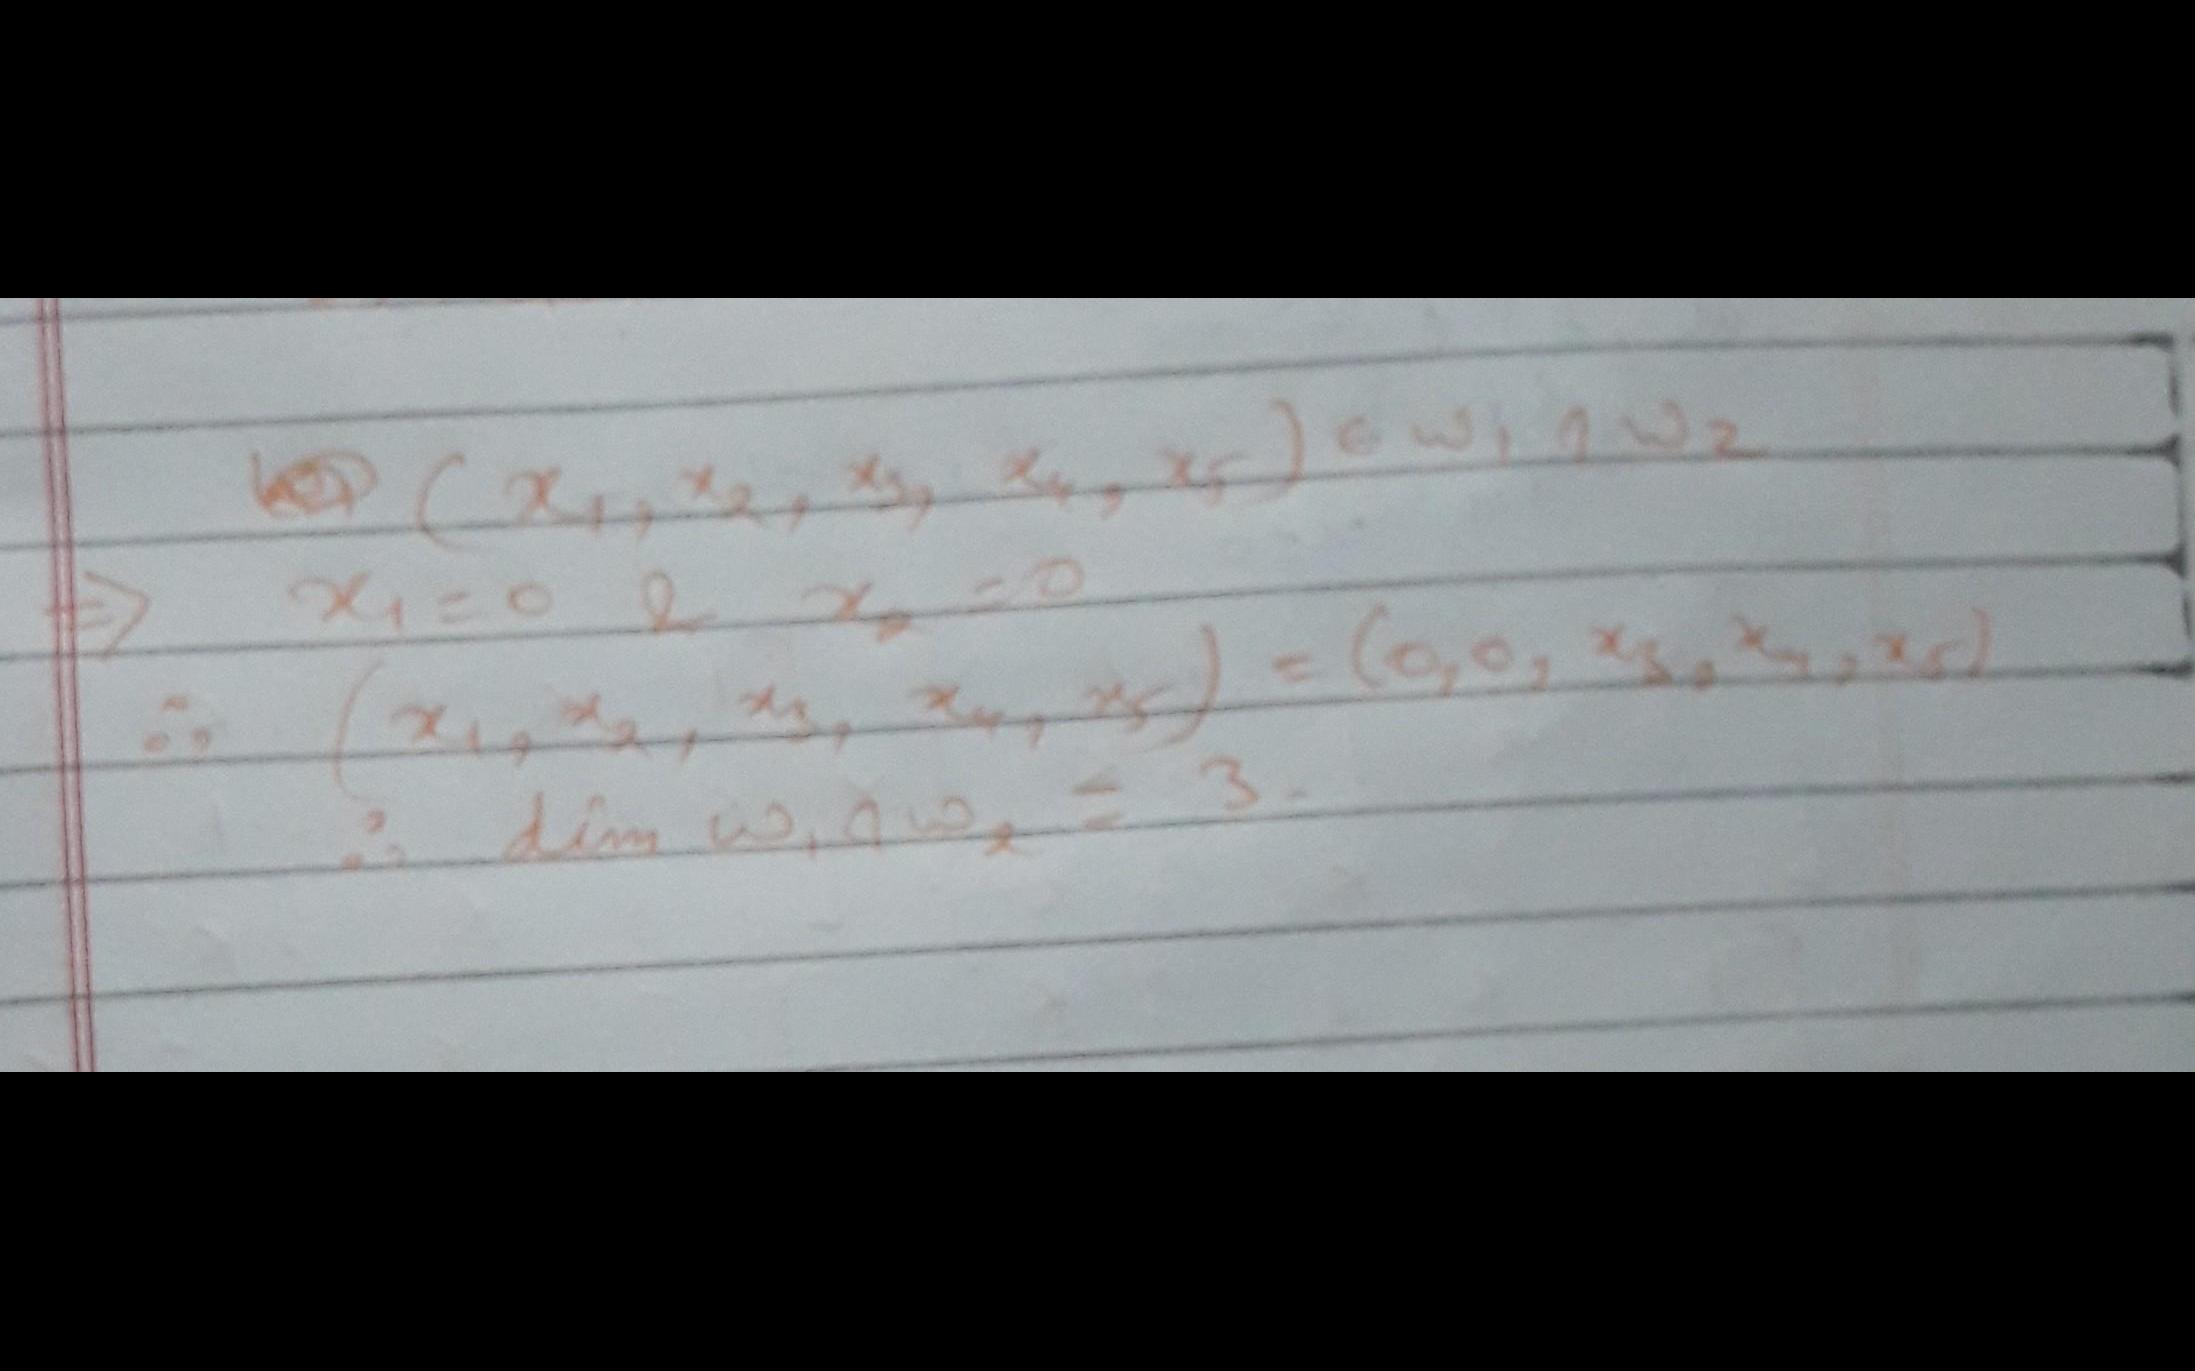 (x₁, x₂, x₃, x₄, x₅) ∈ W₁ ∩ W₂
⇒ x₁ = 0 & x₂ = 0
∴ (x₁, x₂, x₃, x₄, x₅) = (0, 0, x₃, x₄, x₅)
∴ dim W₁ ∩ W₂ = 3.